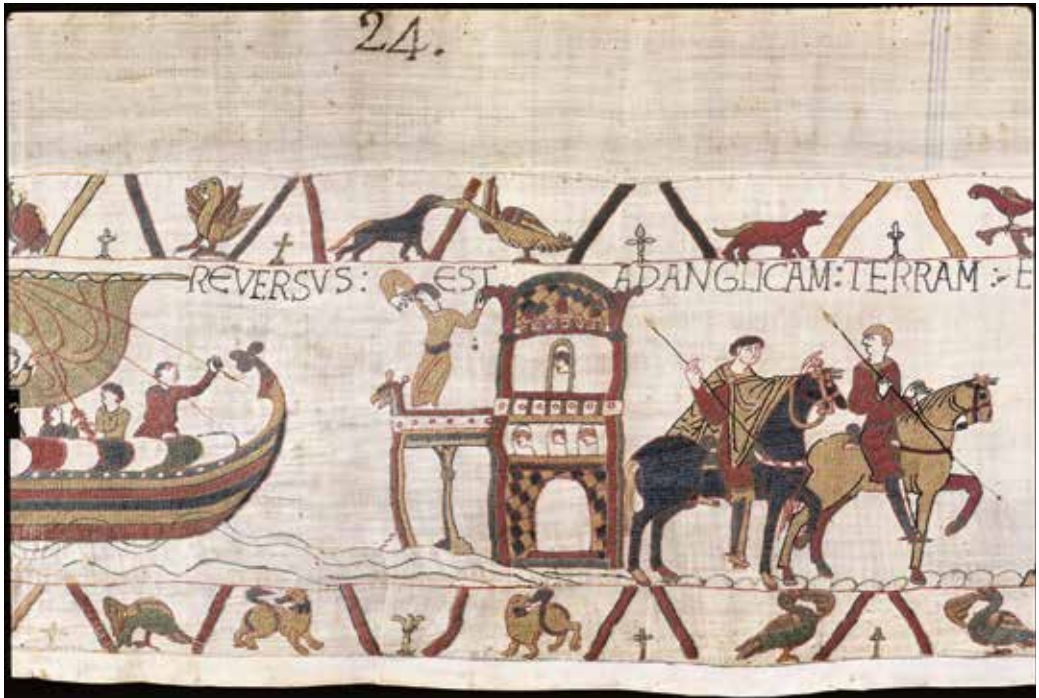 24.
REVERSVS : EST AD ANGLICAM : TERRAM :- E